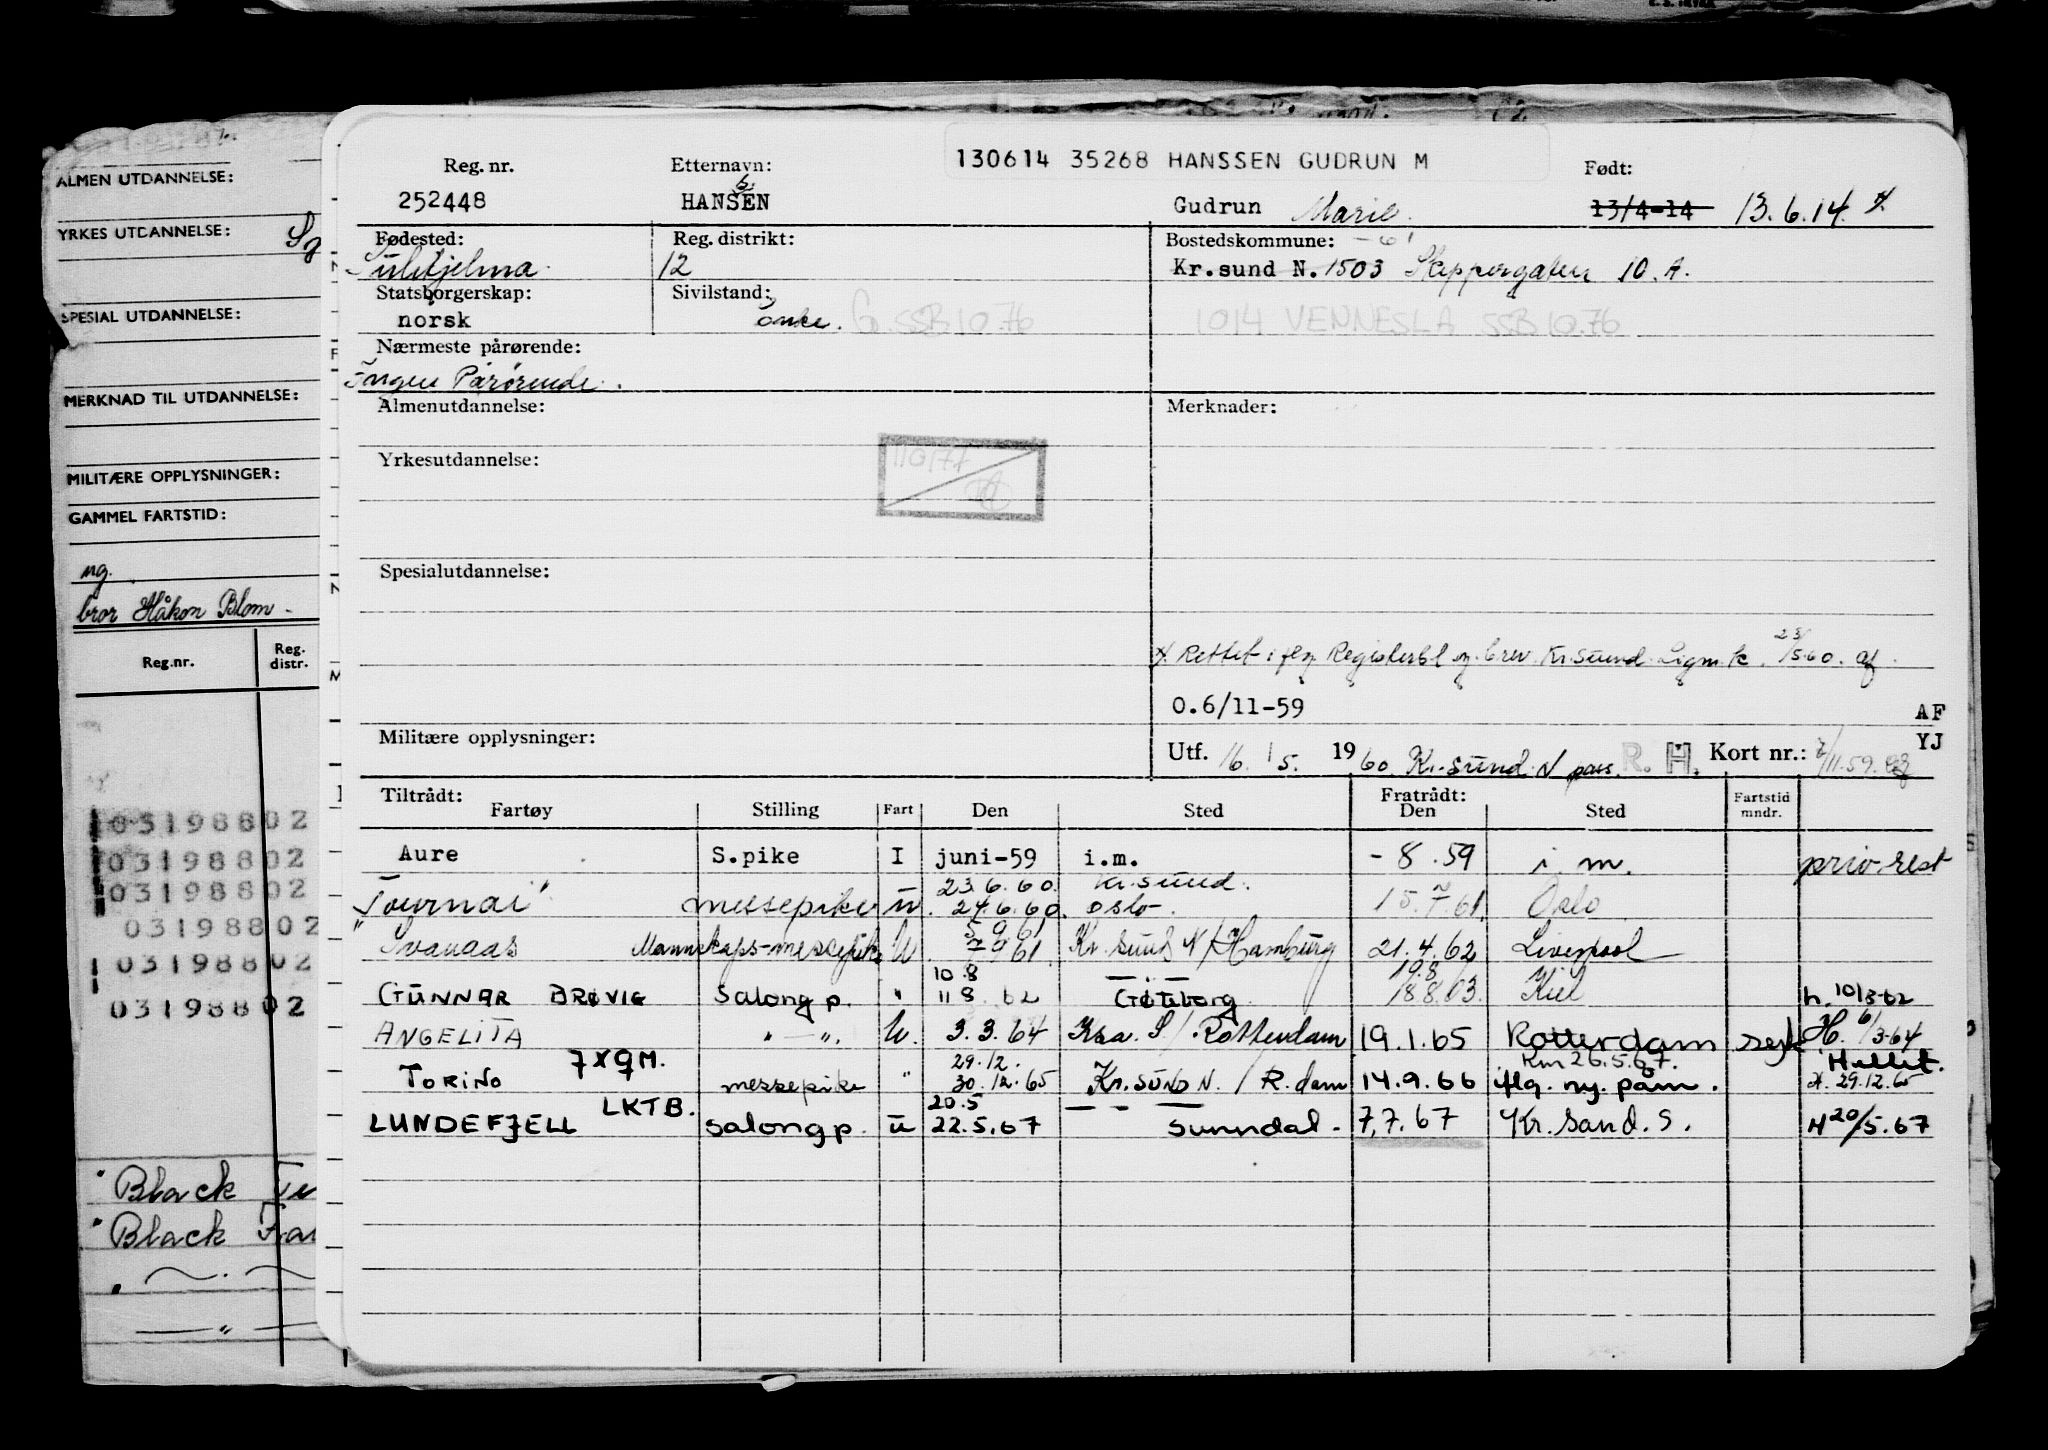 130614 35268 HANSSEN GUDRUN M
Reg. nr. Etternavn: Født:
252448 HANSEN s Gudrun Marie. 13/4-14 13.6.14 x.
Fødested: Reg. distrikt: Bostedskommune:
Sulitjelma 12 Kr.sund N. 1503 Skippergaten 10. A.
Statsborgerskap: Sivilstand:
norsk Enke. G. SSB 10.76 1014 VENNESLA SSB 10.76
Nærmeste pårørende:
Ingen Pårørende.
Almenutdannelse: Merknader:
Yrkesutdannelse: 110177
Spesialutdannelse:
x Rettet iflg Registerbl og brev Kr.sund Ligm.k. 23/5 60. af.
0.6/11-59 AF
Militære opplysninger: Utf. 16 / 5. 1960. Kr.sund.N pass. R. H. Kort nr.: 7/11.59. YJ
Tiltrådt: Fratrådt: Fartstid
Fartøy Stilling Fart Den Sted Den Sted mndr.
Aure S.pike I juni-59 i.m. - 8.59 i m. priv-rest
23.6.60. Kr.sund.
"Tournai" messepike u. 24.6.60. oslo. 15.7.61. Oslo
5 9 61
"Svanaas Mannskaps-messepike U. 7 9 61 Kr. sund N/Hamburg 21.4.62 Liverpool
10.8 19.8
GUNNAR BRØVIG Salong p. " 11 8. 62 Gøteborg 18 8.63. Kiel h. 10/8-62
ANGELITA " — ". U. 3.3.64 Kra. S/. Rotterdam 19.1.65 Rotterdam sejk H. 6/3-64
7 X 9 M. 29.12. Km 26.5.67. H.
TORINO messepike " 30.12.65 Kr.sund N. / R.dam 14.9.66 iflg. ny. pam. H. 29.12.65
LKTB. 20.5
LUNDEFJELL salong p. u 22.5.67 Sunndal. 7,7.67 Kr.Sand.S. H 20/5.67
ALMEN UTDANNELSE:
YRKES UTDANNELSE:
SPESIAL UTDANNELSE:
MERKNAD TIL UTDANNELSE:
MILITÆRE OPPLYSNINGER:
GAMMEL FARTSTID:
ng.
bror Håkon Blom -
Reg.nr. Reg. distr.
03198802
03198802
03198802
03198802
03198802
03198802
" Black
" Black